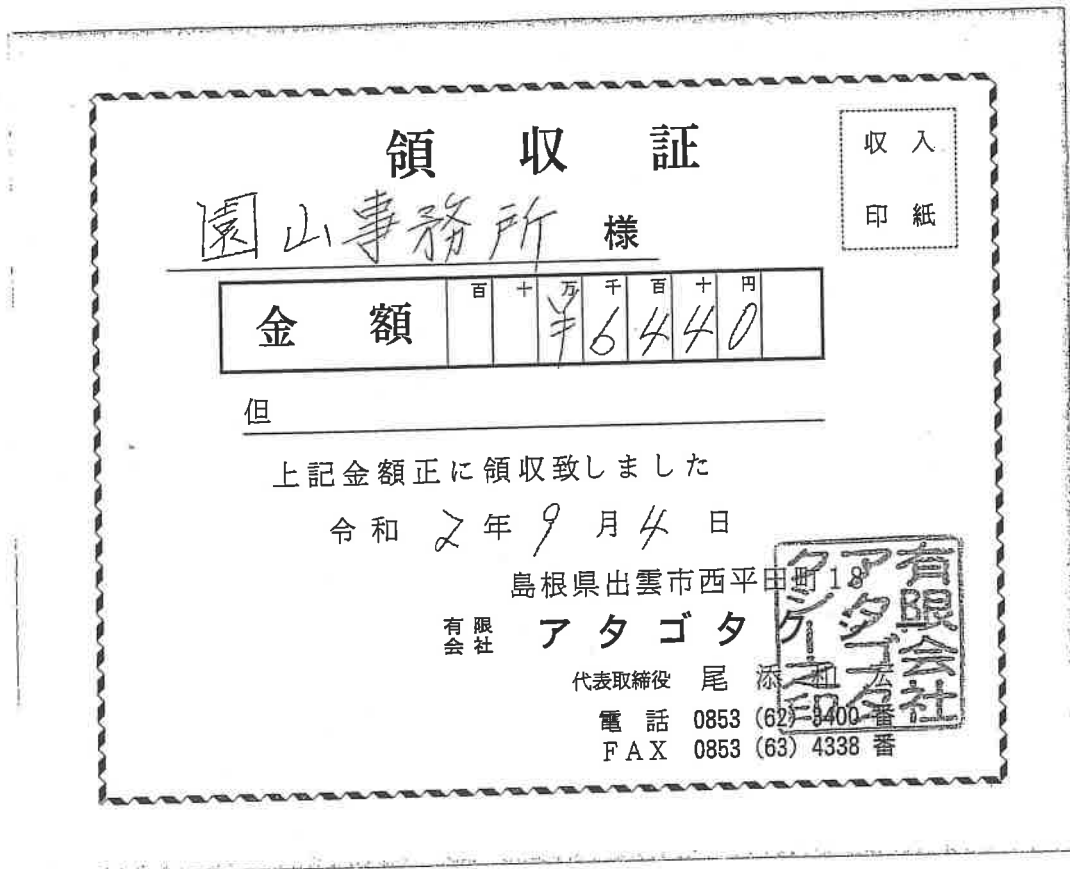 領収証
収入
印紙
園山事務所 様
金額 百 十 万 千 百 十 円
¥6440
但
上記金額正に領収致しました
令和 2 年 9 月 4 日
島根県出雲市西平田町18
有限会社 アタゴタク
代表取締役 尾添
電話 0853 (62) 3400 番
FAX 0853 (63) 4338 番
有限会社
アタゴタ
クシー之印